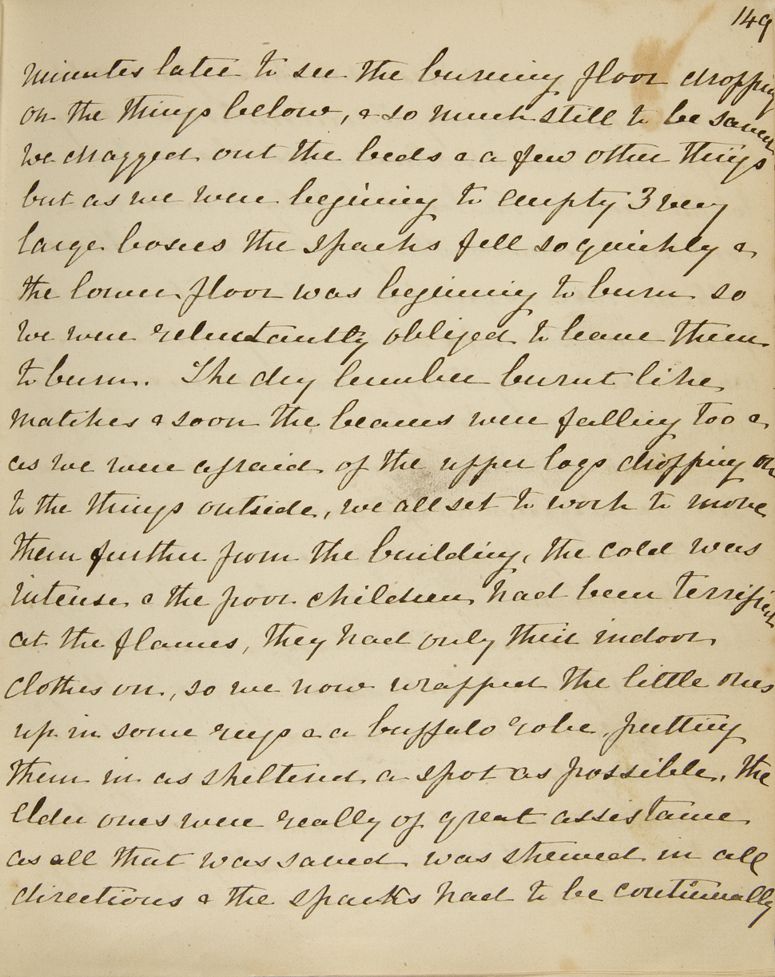 149
minutes later to see the burning floor dropping
on the things below, & so much still to be saved
we dragged out the beds & a few other things
but as we were begining to empty 3 very
large boxes the sparks fell so quickly &
the lower floor was beginning to burn so
we were reluctantly obliged to leave them
to burn. The dry lumber burnt like
matches & soon the beams were falling too &
as we were afraid of the upper logs dropping on
to the things outside, we all set to work to move
them further from the building, the cold was
intense & the poor children had been terrified
at the flames, they had only their indoor
clothes on, so we now wrapped the little ones
up in some rugs & a buffalo robe, putting
them in as sheltered a spot as possible, the
elder ones were really of great assistance
as all that was saved was strewed in all
directions & the sparks had to be continually